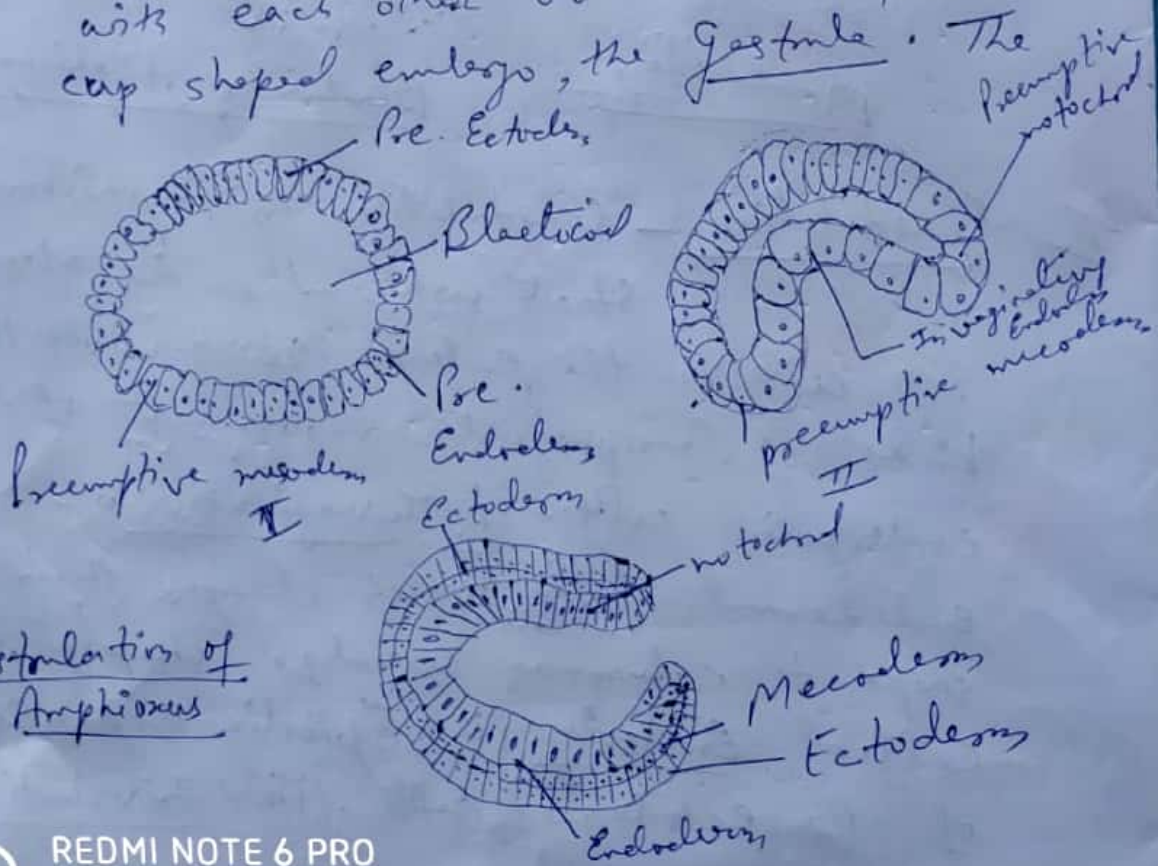 with each other
cup shaped embryo, the Gastrula. The
Pre. Ectoderm
Blastocoel
Pre.
Endoderm
Preemptive mesoderm
I
Preemptive
notochord
Invaginating
Endoderm
mecoderm
preemptive
II
Ectoderm
notochord
Mecoderm
Ectoderm
Endoderm
strulation of
Amphioxus
REDMI NOTE 6 PRO